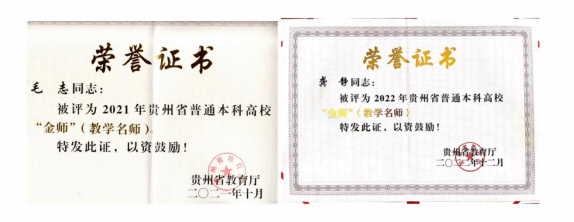 荣誉证书
毛 志同志：
被评为2021年贵州省普通本科高校
“金师”（教学名师）。
特发此证，以资鼓励！
贵州省教育厅
二〇二一年十月
荣誉证书
龚 静同志：
被评为2022年贵州省普通本科高校
“金师”（教学名师）
特发此证，以资鼓励！
贵州省教育厅
二〇二二年十二月